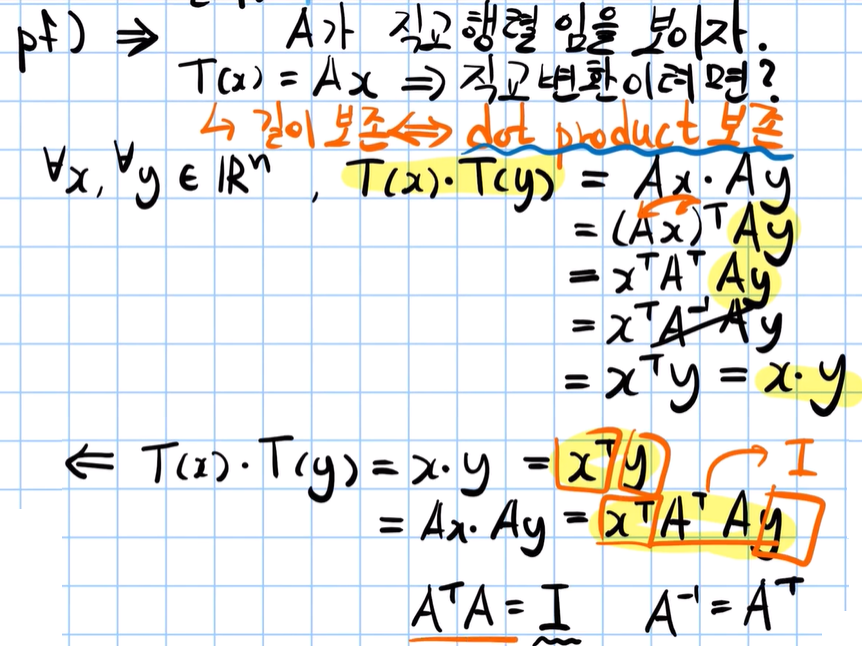 pf) ⇒ A가 직교행렬 임을 보이자.
T(x) = Ax ⇒ 직교변환이려면?
↳ 길이 보존 ⇔ dot product 보존
∀x, ∀y ∈ ℝⁿ, T(x)·T(y) = Ax·Ay
= (Ax)ᵀAy
= xᵀAᵀAy
= xᵀA⁻¹Ay
= xᵀy = x·y
⇐ T(x)·T(y) = x·y = xᵀy I
= Ax·Ay = xᵀAᵀAy
AᵀA = I A⁻¹ = Aᵀ